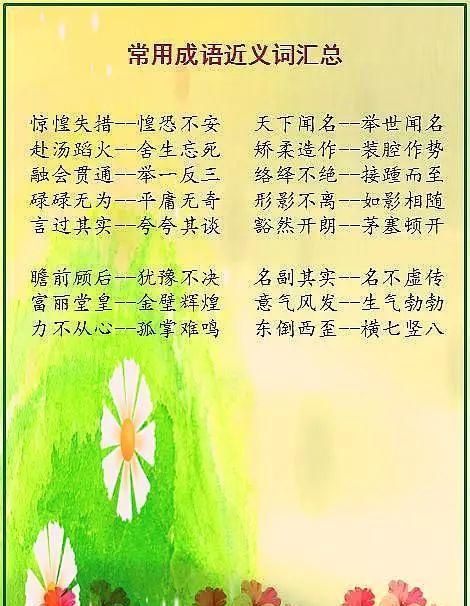 常用成语近义词汇总
惊惶失措--惶恐不安 天下闻名--举世闻名
赴汤蹈火--舍生忘死 矫柔造作--装腔作势
融会贯通--举一反三 络绎不绝--接踵而至
碌碌无为--平庸无奇 形影不离--如影相随
言过其实--夸夸其谈 豁然开朗--茅塞顿开
瞻前顾后--犹豫不决 名副其实--名不虚传
富丽堂皇--金璧辉煌 意气风发--生气勃勃
力不从心--孤掌难鸣 东倒西歪--横七竖八